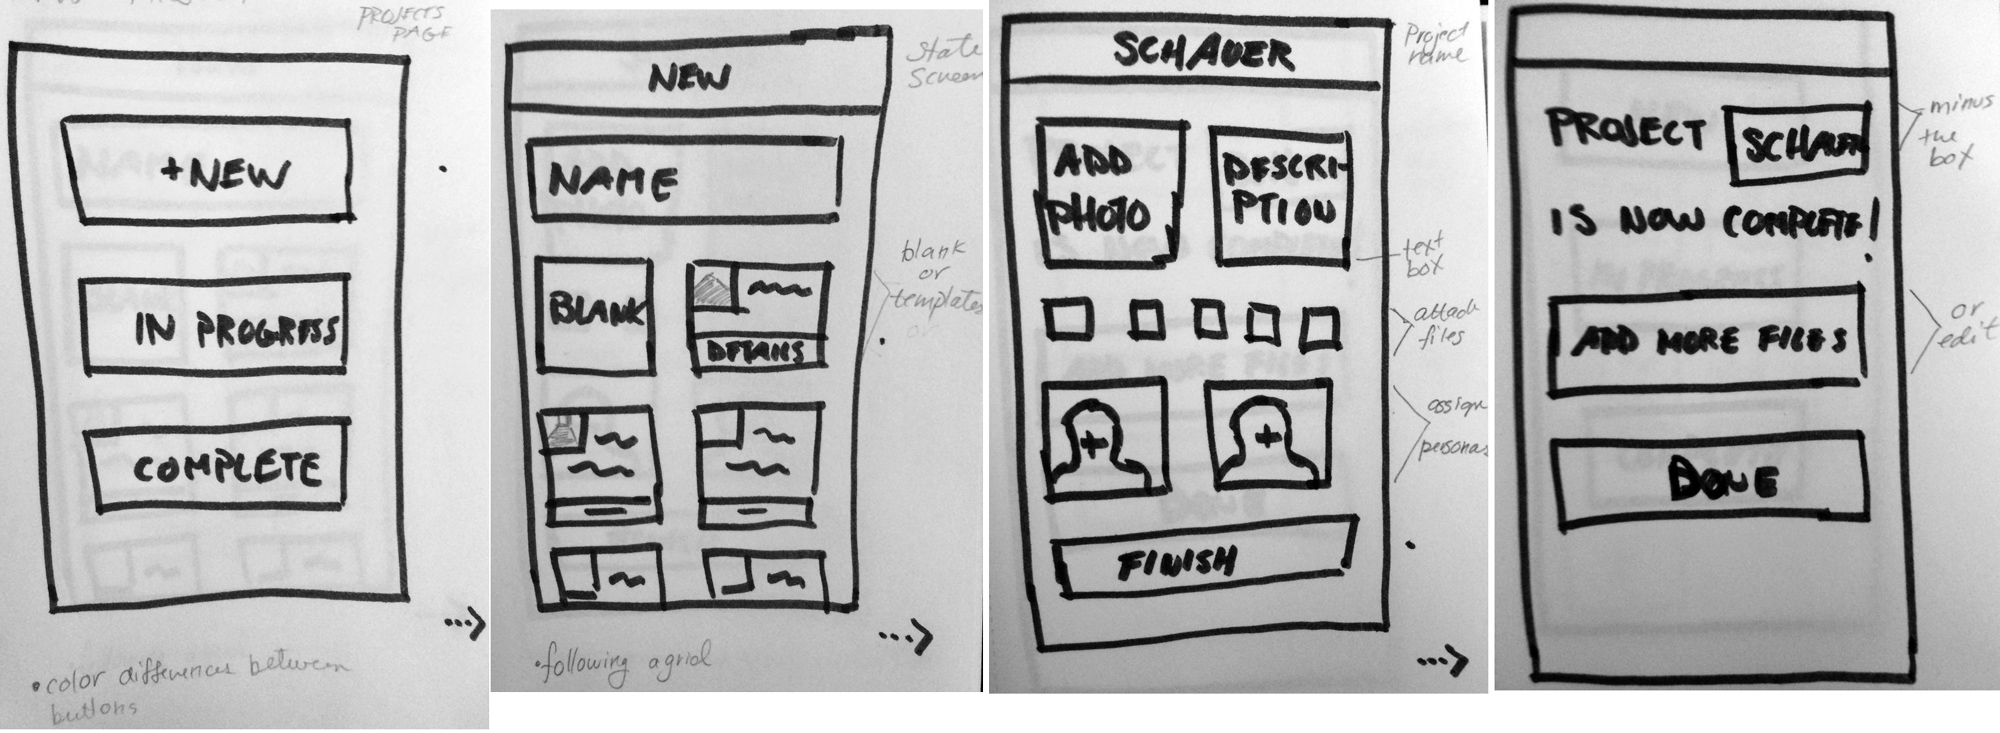 PROJECTS
PAGE
+NEW
IN PROGRESS
COMPLETE
•color differences between
buttons
State
Screen
NEW
NAME
BLANK
DETAILS
blank
or
templates
•following a grid
Project
name
SCHAUER
ADD
PHOTO
DESCRI-
PTION
text
box
attach
files
assign
personas
FINISH
minus
the
box
PROJECT SCHAUER
IS NOW COMPLETE!
ADD MORE FILES
or
edit
DONE